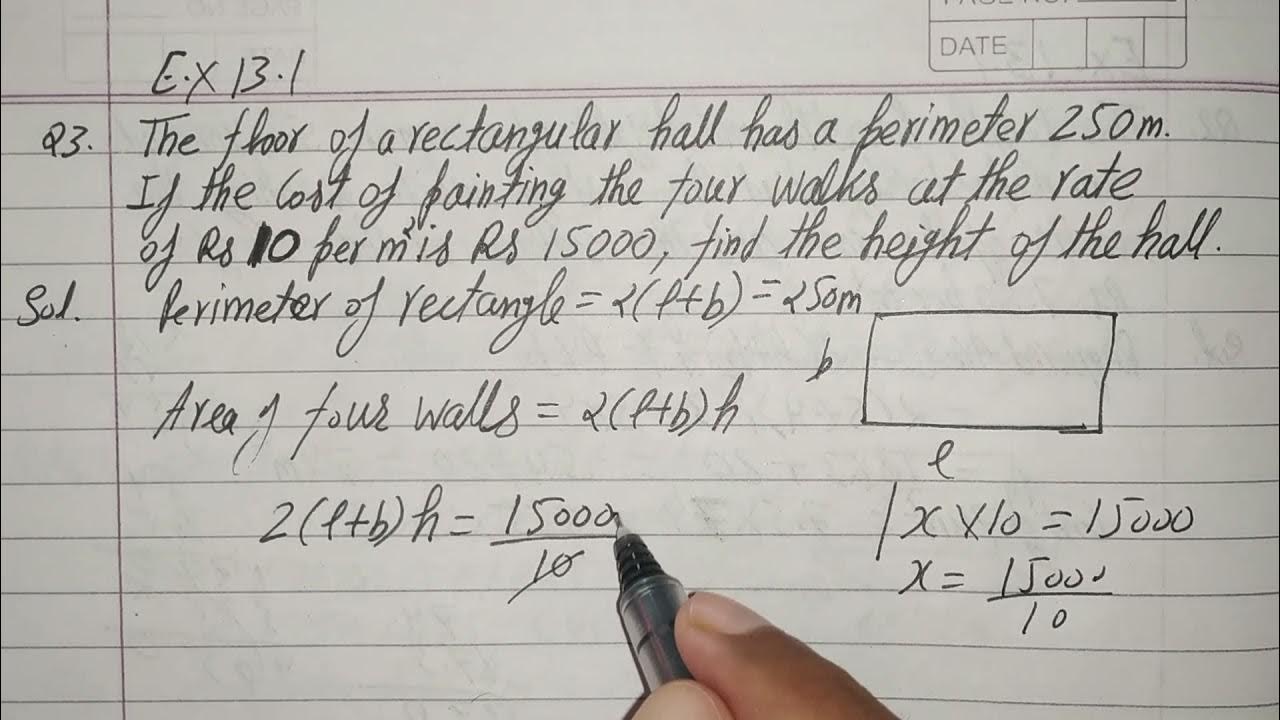 PAGE NO.
DATE
Ex 13.1
Q3. The floor of a rectangular hall has a perimeter 250m.
If the cost of painting the four walks at the rate
of Rs 10 per m² is Rs 15000, find the height of the hall.
Sol. Perimeter of rectangle = 2(l+b) = 250m
b
Area of four walls = 2(l+b)h
l
2(l+b)h = 15000/10
x × 10 = 15000
x = 15000/10